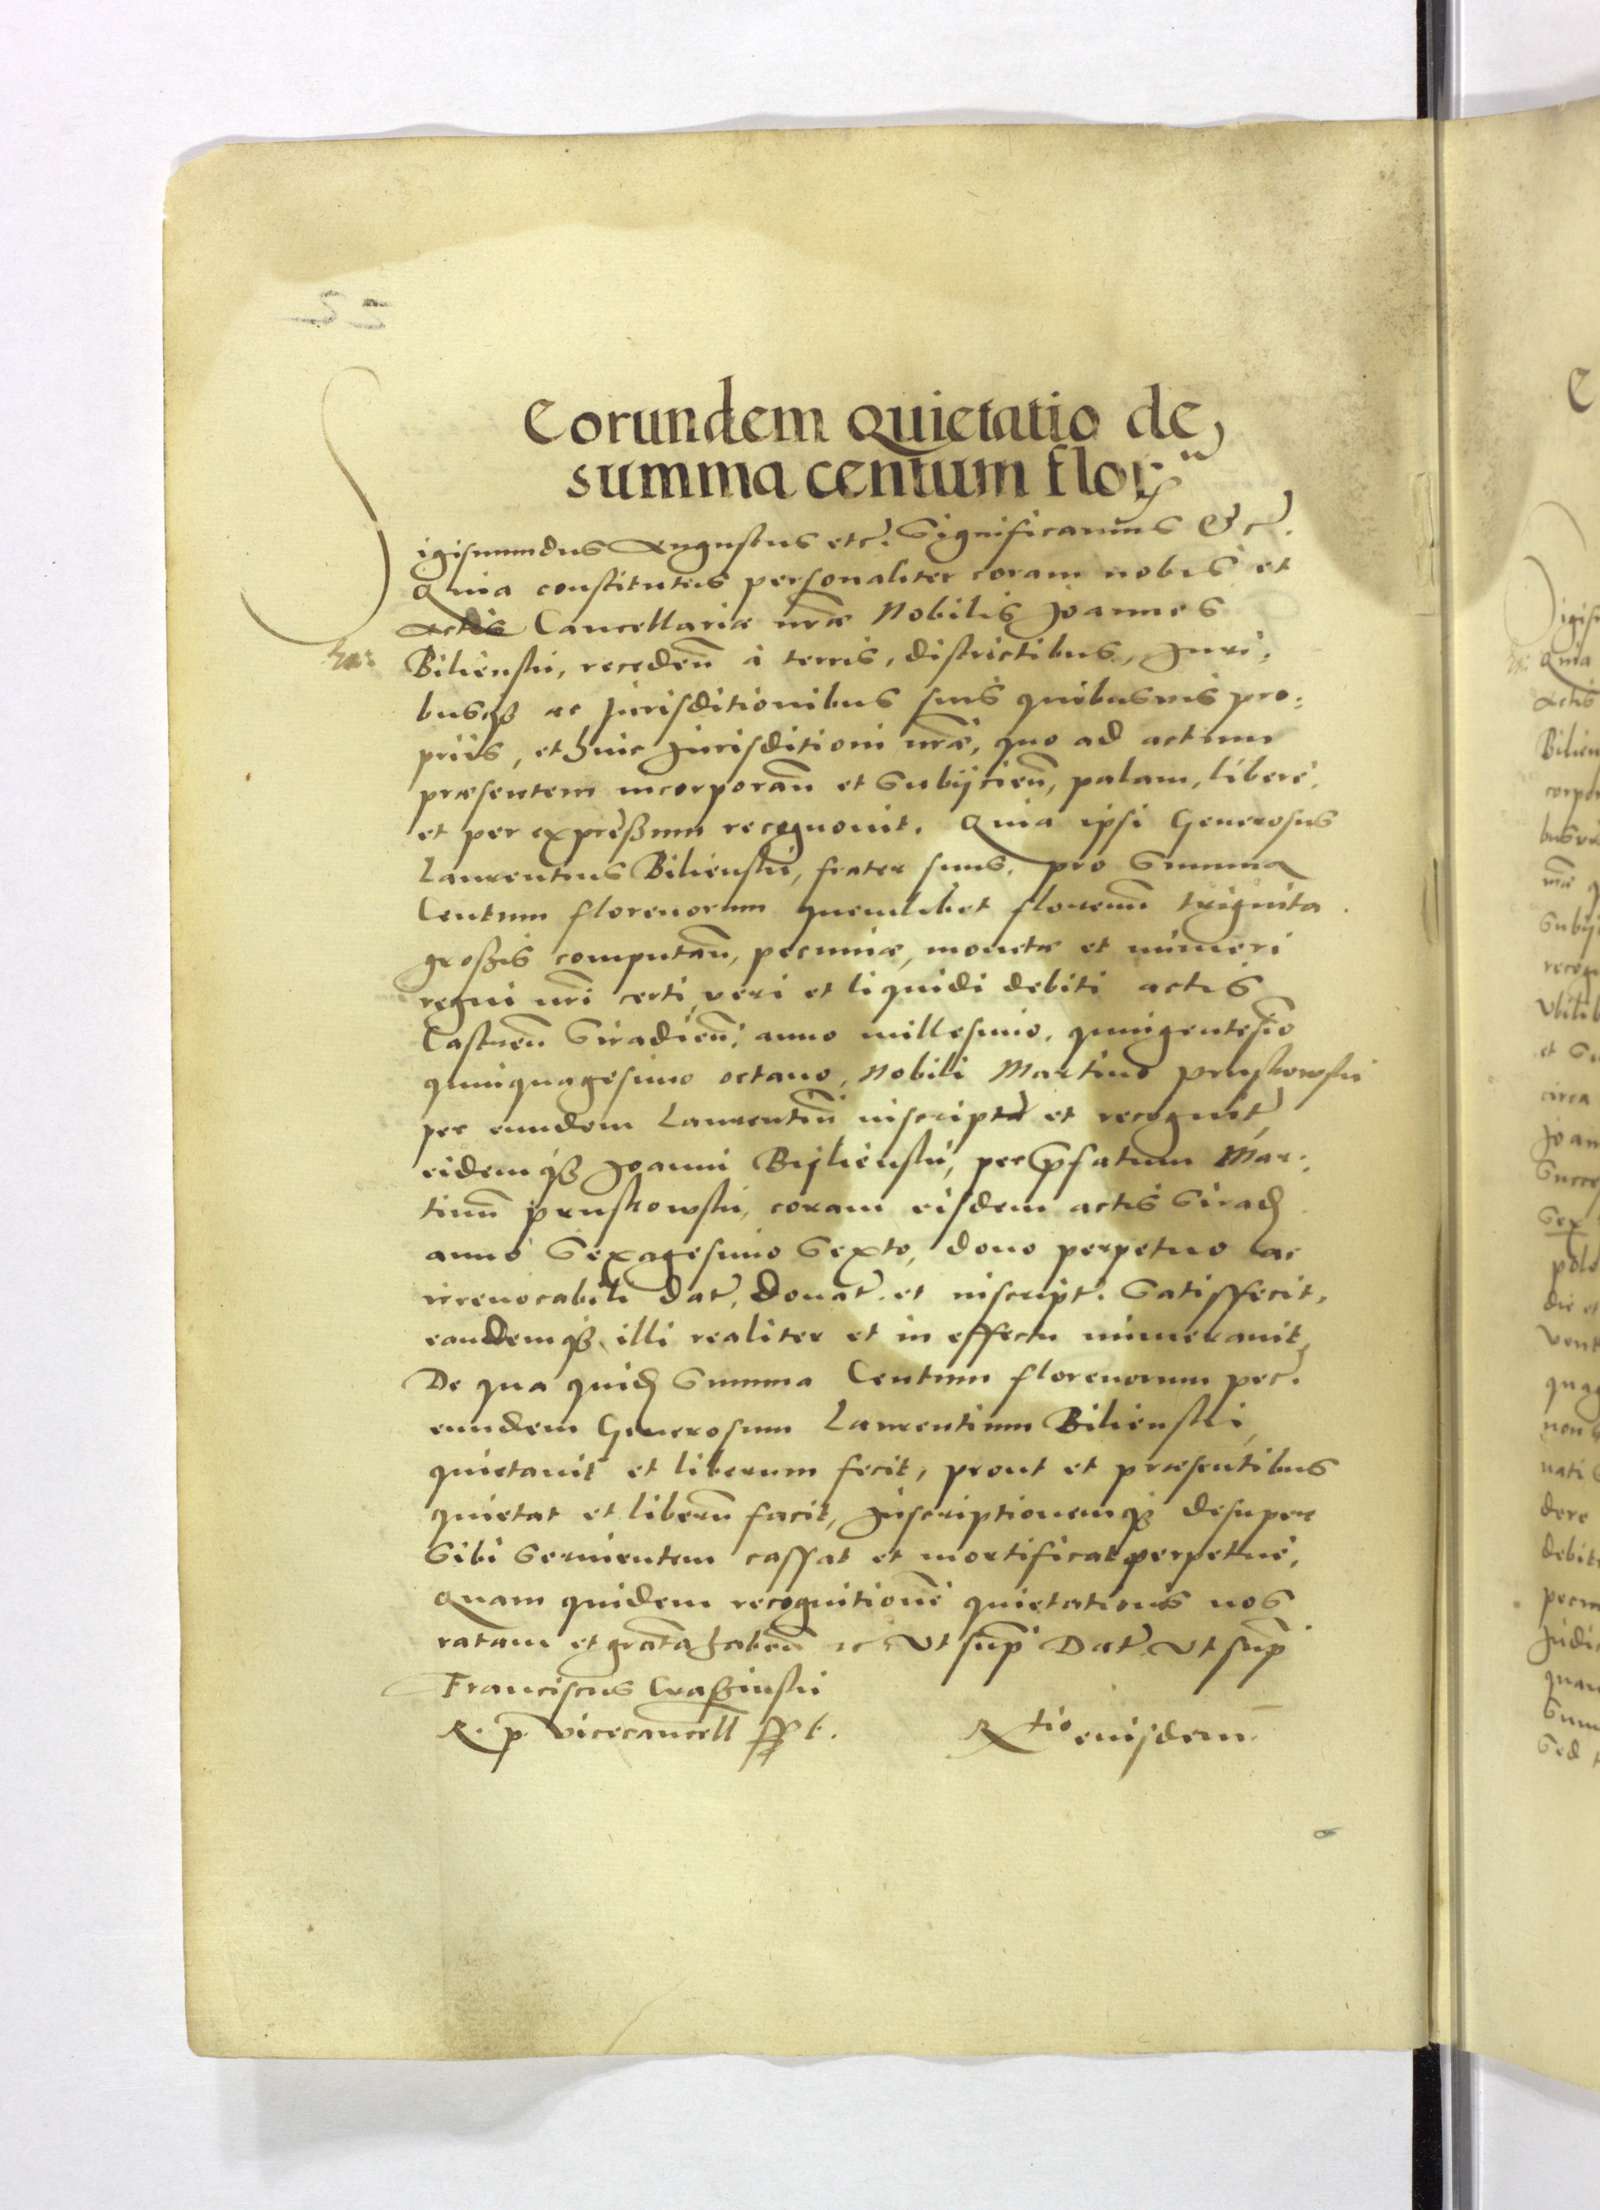 Eorundem quietatio de
summa centum florꝝ
Sigismundus Augustus etc. Significamus Etc.
Quia constitutus personaliter coram nobis et
Actis Cancellariæ nr̃æ Nobilis Joannes
Bilienski, recedeñ à terris, districtibus, Juri,
busq₃ ac Jurisditionibus suis quibusuis pro,
priis, et huic Jurisditioni nr̃æ, quo ad actum
præsentem incorporañ et subijcieñ, palam, liberè,
et per expreßum recognouit. Quia ipsi Generosus
Laurentius Bilienski, frater suus, pro summa
Centum florenorum quemlibet florenũ triginta
großis computañ, pecuniæ, monetæ et numeri
regni nr̃i certi, veri et liquidi debiti actis
Castreñ Siradieñ, anno millesimo, quingentesĩo
quinquagesimo octauo, Nobili Martino Pruskowski
per eundem Laurentiũ inscripta et recognit̃,
eidemq₃ Joanni Byliensky, per p̃fatum Mar,
tinũ Pruskowski, coram eisdem actis Sirad̃
anno Sexagesimo Sexto, dono perpetuo ac
irreuocabili dat̃, donat̃ et inscript̃. Satisffecit,
eandemq₃ illi realiter et in effectu numerauit,
De qua quid̃ Summa Centum florenorum pec̃.
eundem Generosum Laurentium Bilienski
quietauit et liberum fecit, prout et præsentibus
quietat et liberũ facit, Inscriptionemq₃ desuper
Sibi Seruientem cassat et mortificat perpetuè,
Quam quidem recognitionẽ quietationis nos
ratam et grãta habeñ etc Vt sup̃ Dat̃ Vt sup̃
Franciscus Craßinski
R. P. Vicecancell̃ sst.
Rtio eiusdem